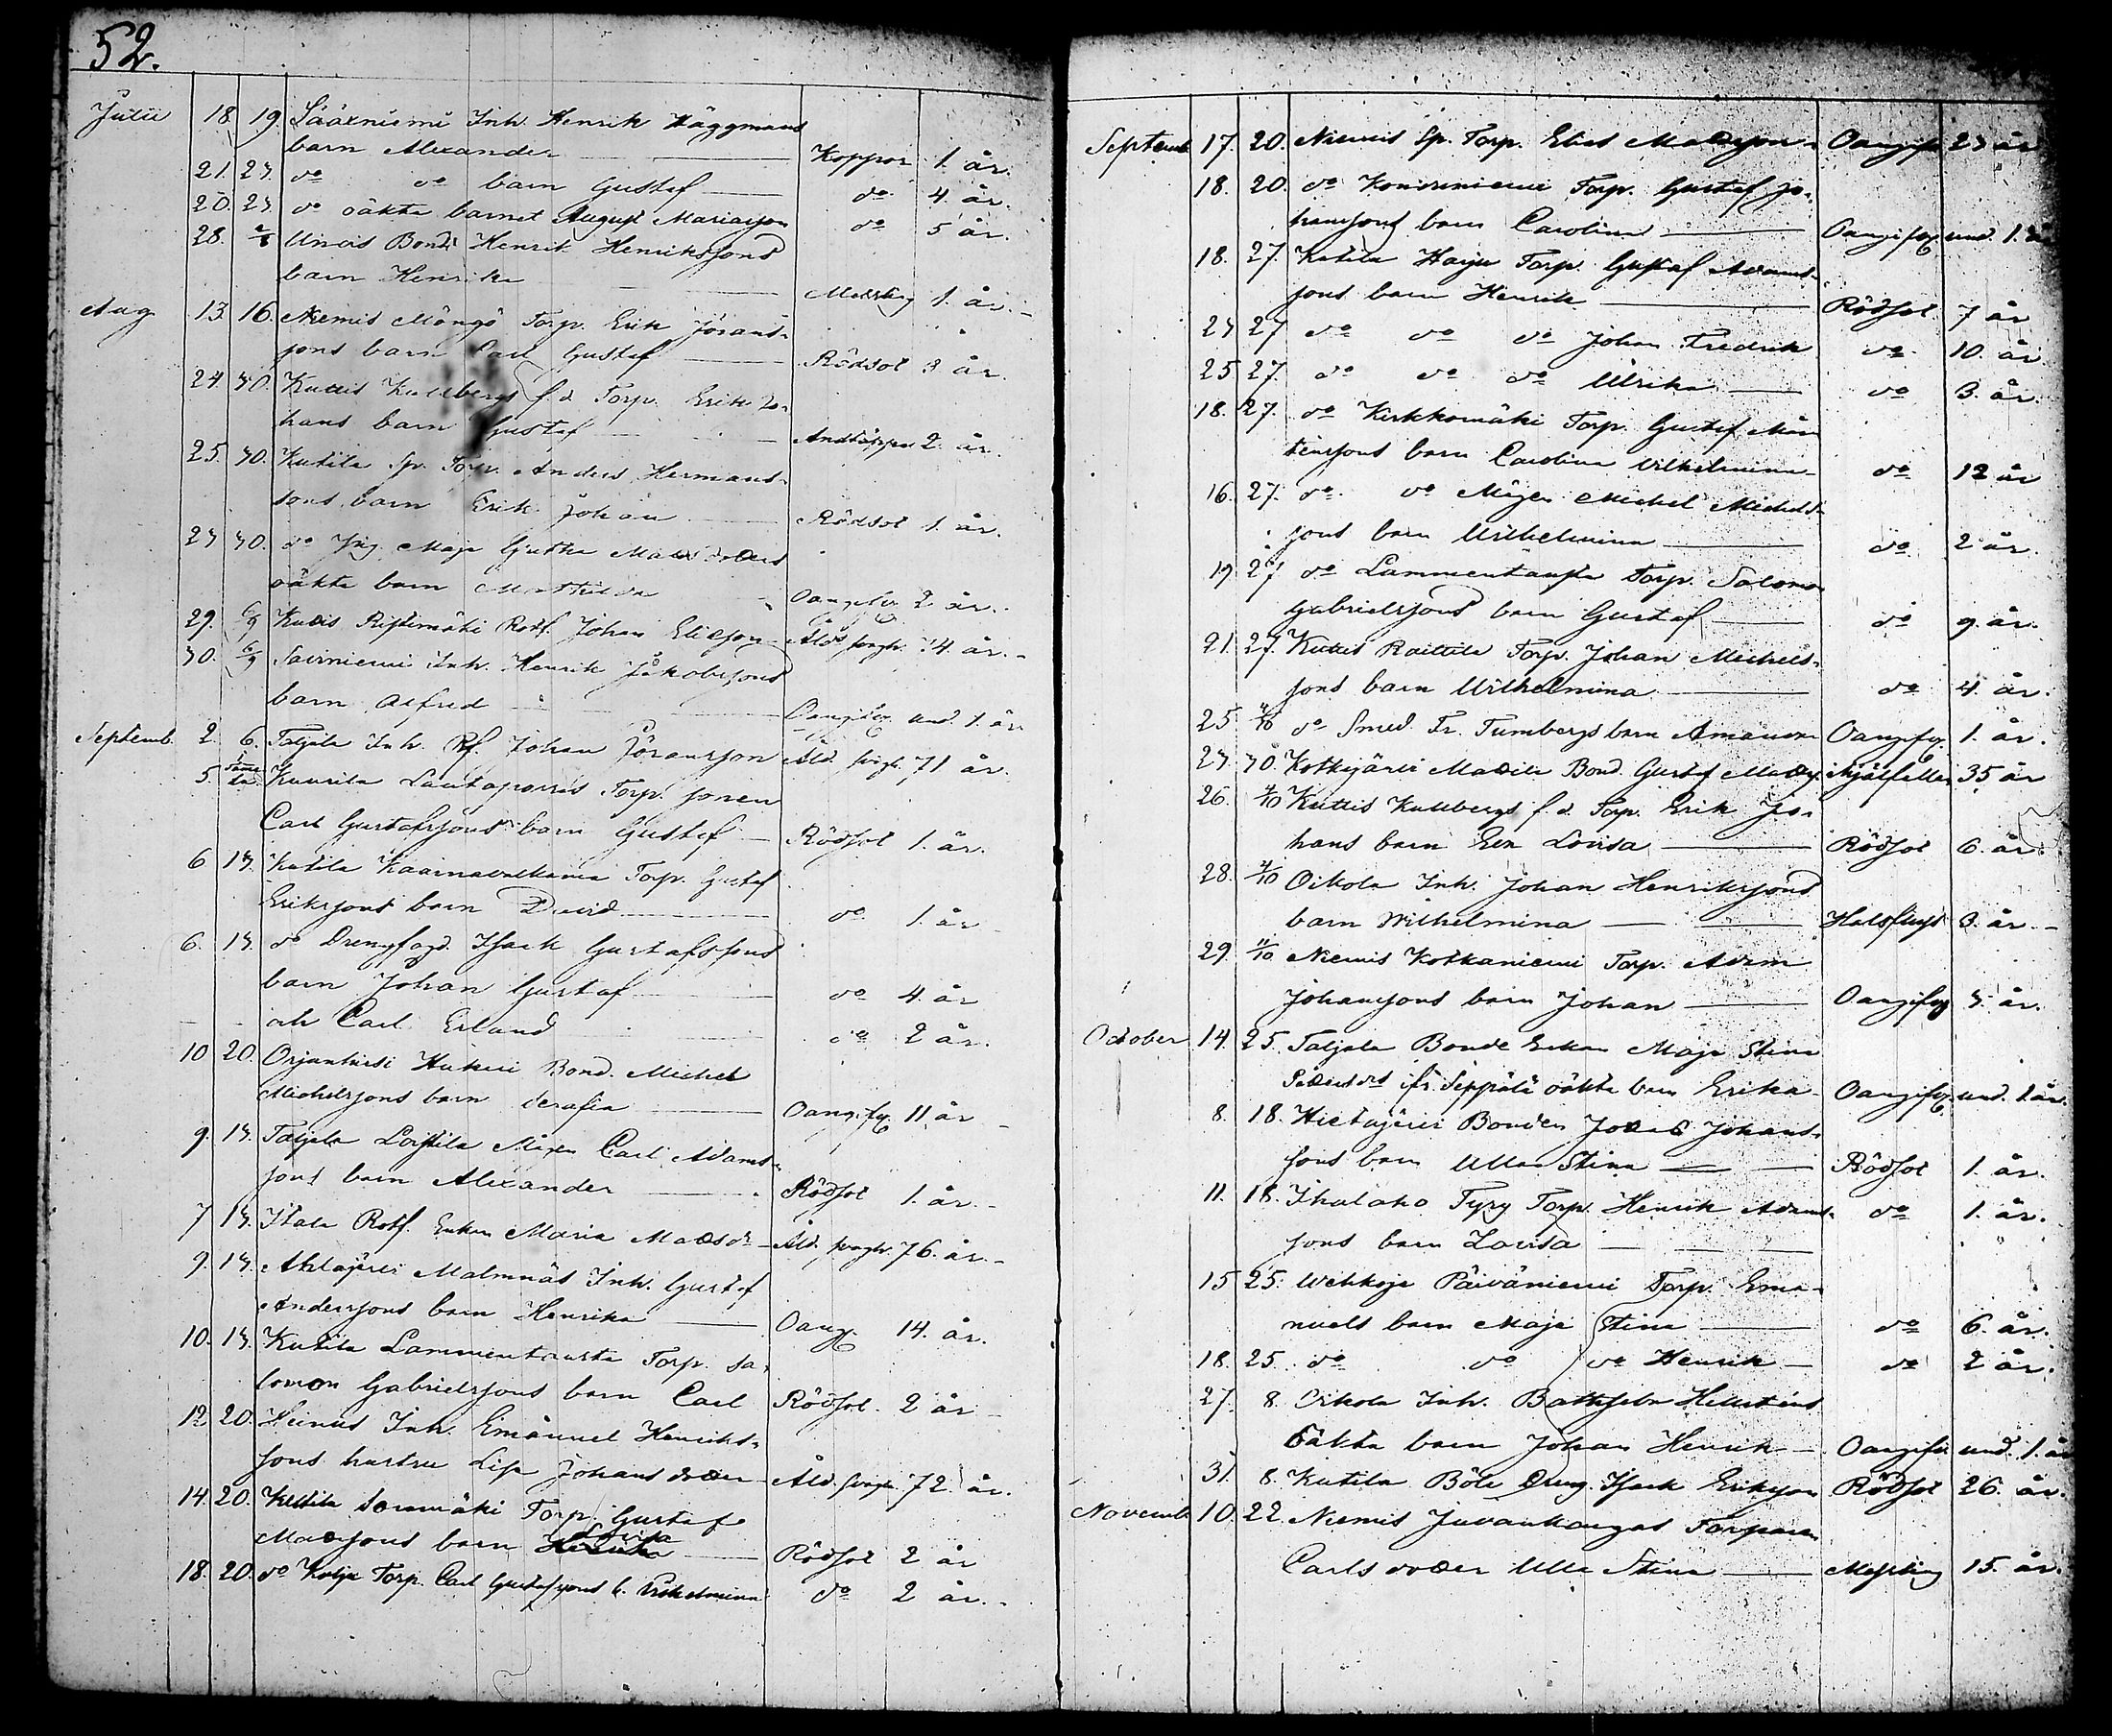 52.
Julii 18 19 Sääxniemi Inh. Henrik Häggmans
barn Alexander Koppor 1. år.
21. 23. do do barn Gustaf do 4. år.
20. 23. do oäkta barnet August Mariasson do 5 år.
28. 2/8 Uncis Bond. Henrik Henrikssons
barn Henrika Messling 1. år.
Aug. 13. 16. Niemis Torp. Erik Görans-
sons barn Carl Gustaf Rödsot 3 år.
24 30. Kuttis Kullbergs f.d. Torp. Erik Jo-
hans barn Gustaf Andtäppa 2. år.
25. 30. Kutila Sp. Torp. Anders Hermans-
sons barn Erik Johan Rödsot 1. år.
23 30. do Pig. Maja Gretha Matsdotters
oäkta barn Mathilda Oangifv. 2 år.
29. 6/9 Kuttis Ristimäki Rotf. Johan Elieson Åld. svagh. 74 år.
30. 6/9 Sairniemi Inh. Henrik Jakobssons
barn Alfred Oangifv. und. 1. år
Septemb. 2. 6. Taljala Inh. Rf. Johan Göransson Åld. svagh. 71 år.
5 samma da. Kuurila Lautaporras Torp. sonen
Carl Gustafssons barn Gustaf Rödsot 1. år.
6 13. Kutila Kaarnavalkama Torp. Gustaf
Erikssons barn David do 1. år
6. 13. do Drengfogd. Isack Gustafssons
barn Johan Gustaf do 4. år
och Carl Erland do 2 år.
10 20. Orjanhirsi Hukari Bond. Michel
Michelssons barn Serafia Oangifv. 11 år
9. 13. Taljala Loistila Mågen Carl Adams-
sons barn Alexander Rödsot 1. år.
7 13. Itala Rotf. Enkan Maria Matsdr Åld. svagh. 76. år.
9. 13. Ahlajärvi Malmnäs Inh. Gustaf
Anderssons barn Henrika Oang. 14. år.
10. 13. Kutila Lammentausta Torp. Sa-
lomon Gabrielssons barn Carl Rödsot. 2 år
12 20. Heinus Inh. Emanuel Henriks-
sons hustru Lisa Johansdotter Åld. svagh. 72. år.
14. 20. Kutila Sorrmäki Torp. Gustaf
Matssons barn Lovisa Rödsot 2 år
18. 20. do Kolja Torp. Carl Gustafssons b. Vilhelmina do 2 år.
Septemb 17. 20. Niemis Sp. Torp. Elias Matsson Oangifv. 23 år
18. 20. do Konivuniemi Torp. Gustaf Jo-
hanssons barn Carolina Oangifv. und. 1. år
18. 27. Kutila Harju Torp. Gustaf Adams-
sons barn Henrik Rödsot 7 år
23 27 do do do Johan Fredrik do 10. år
25 27. do do do Ulrika do 3. år.
18. 27. do Kirkkomäki Torp. Gustaf Mår-
tenssons barn Carolina Vilhelmina do 12 år
16. 27. do do Mågen Michel Michels-
sons barn Wilhelmina do 2 år.
19 27 do Lammentausta Torp. Salomon
Gabrielssons barn Gustaf do 9. år.
21. 27. Kuttis Raittila Torp. Johan Michels-
sons barn Wilhelmina do 4. år.
25. 4/10 do Smed. Fr. Tumbergs barn Amanda Oangifv. 1. år.
23 30 Kotkajärvi Mattila Bond. Gustaf Matss. ihjälfallen 35 år
26. 4/10 Kuttis Kullbergs f.d. Torp. Erik Jo-
hans barn Eva Lovisa Rödsot 6. år.
28. 4/10 Oikola Inh. Johan Henrikssons
barn Wilhelmina Halsflusst 3. år.
29. 11/10 Niemis Kotkaniemi Torp. Adam
Johanssons barn Johan Oangifv. 3. år.
October 14. 25. Taljala Bonde Enkan Maja Stina
fr. Seppälä oäkta barn Erika Oangifv. und. 1 år.
8. 18. Hietajärvi Bonden Johans-
sons barn Ulla Stina Rödsot 1. år.
11. 18. Ihalaho Tyry Torp. Henrik Adams- do 1. år.
sons barn Lovisa
15 25. Wehkoja Päiväniemi Torp. Ema-
nuels barn Maja Stina do 6. år.
18. 25. do do do Henrik do 2 år.
27. 8. Oikola Inh. Bathseba Hellsténs
Oäkta barn Johan Henrik Oangifv. und. 1. år
31. 8. Kutila Böle Dreng. Isack Eriksson Rödsot 26. år.
Novemb. 10. 22. Niemis Juvankangas Torparen
Carls dotter Ulla Stina Messling 15. år.